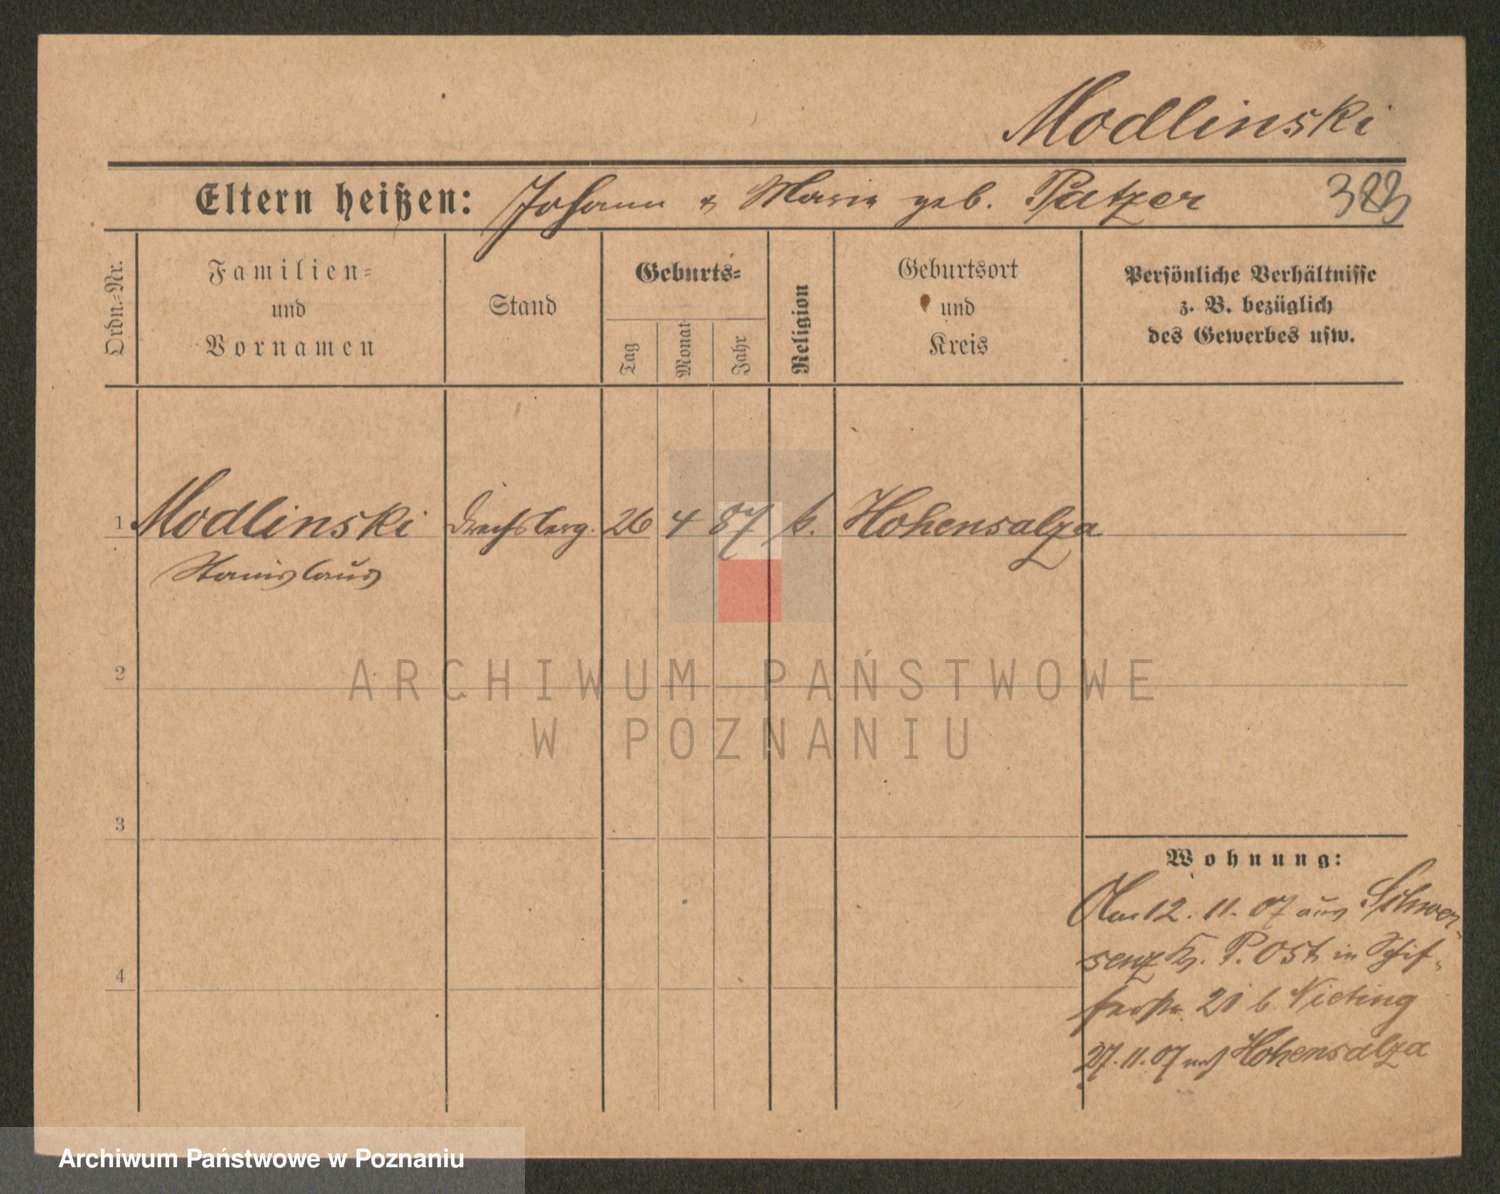 Modlinski
Eltern heißen: Johann & Marie geb. Patzer 383
Ordn.-Nr.
Familien-
und
Vornamen
Stand
Geburts-
Tag
Monat
Jahr
Religion
Geburtsort
und
Kreis
Persönliche Verhältnisse
z. B. bezüglich
des Gewerbes usw.
1 Modlinski 26 4 87 k. Hohensalza
Stanislaus
2
3
4
Wohnung:
Am 12. 11. 07 aus Schwer-
senz Kr. P. Ost in Schif-
ferstr. 20 b. Nieting
27. 11. 07 nach Hohensalza
ARCHIWUM PAŃSTWOWE
W POZNANIU
Archiwum Państwowe w Poznaniu